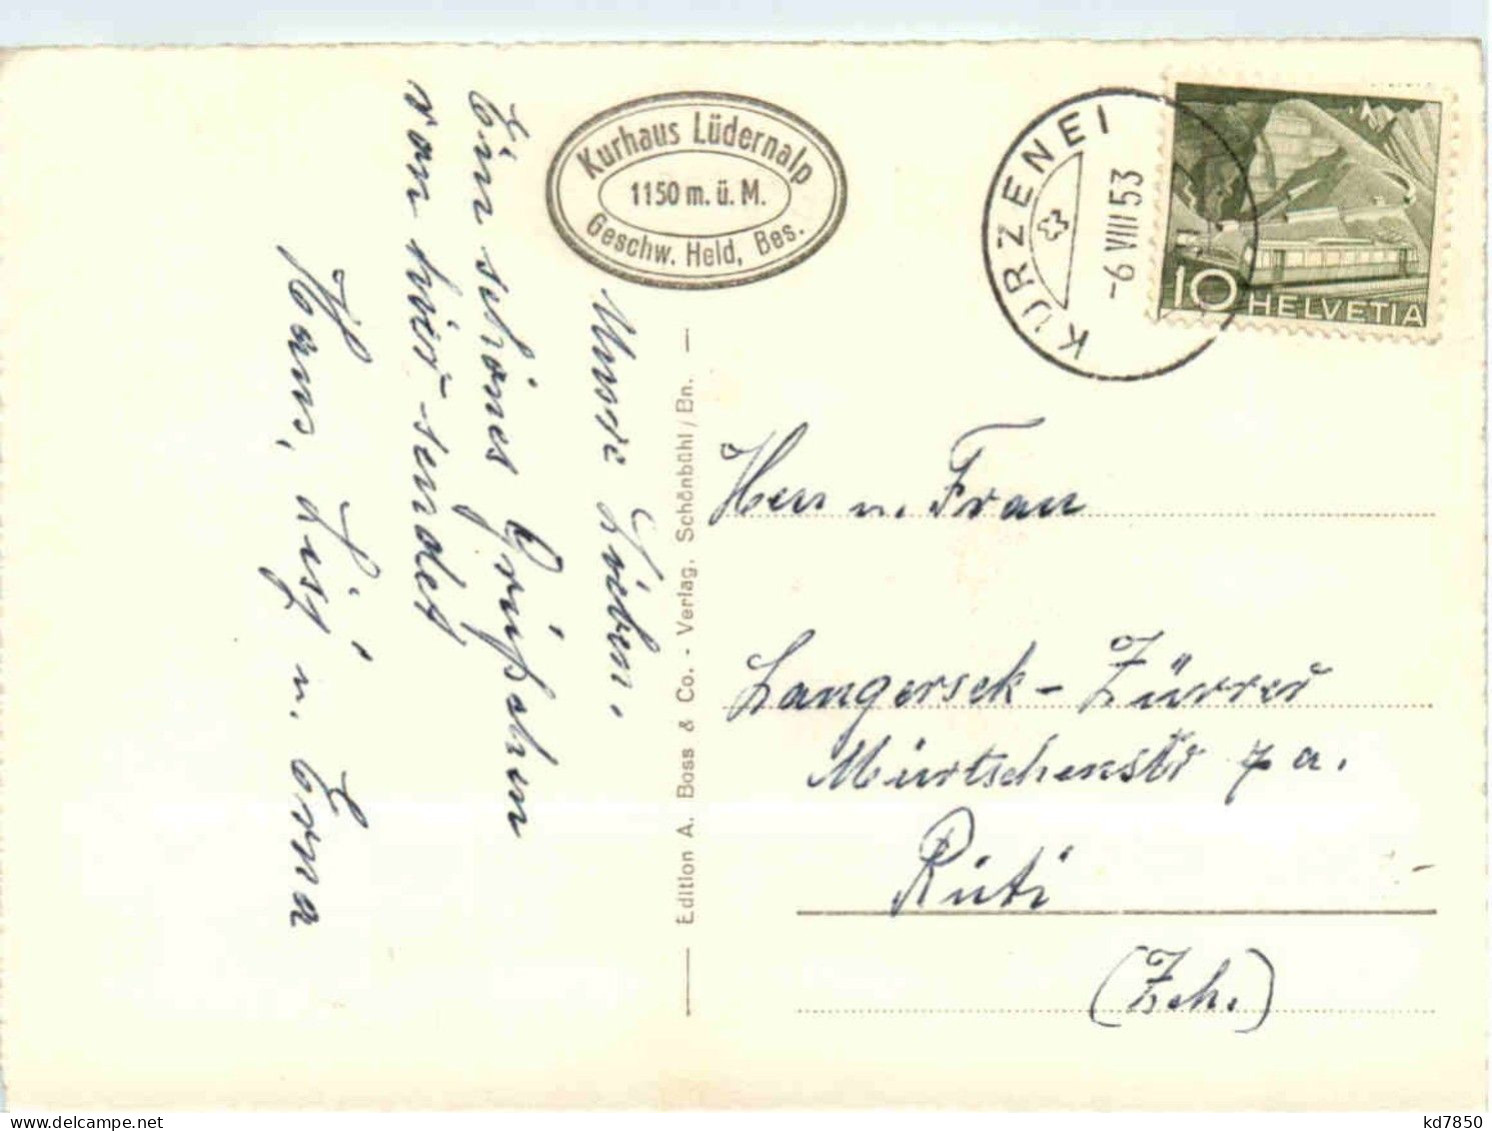 Kurhaus Lüdernalp
1150 m. ü. M.
Geschw. Held, Bes.
KURZENEI
-6 VIII 53
10 HELVETIA
Meine Lieben.
Ein schönes Grüßchen
von hier sendet
Hans, Lisj u. Erna
Edition A. Boss & Co. - Verlag, Schönbühl/Bn.
Herr u. Frau
Langersek - Zürrer
Mürtschenstr 7 a.
Rüti
(Zch.)
kd7850